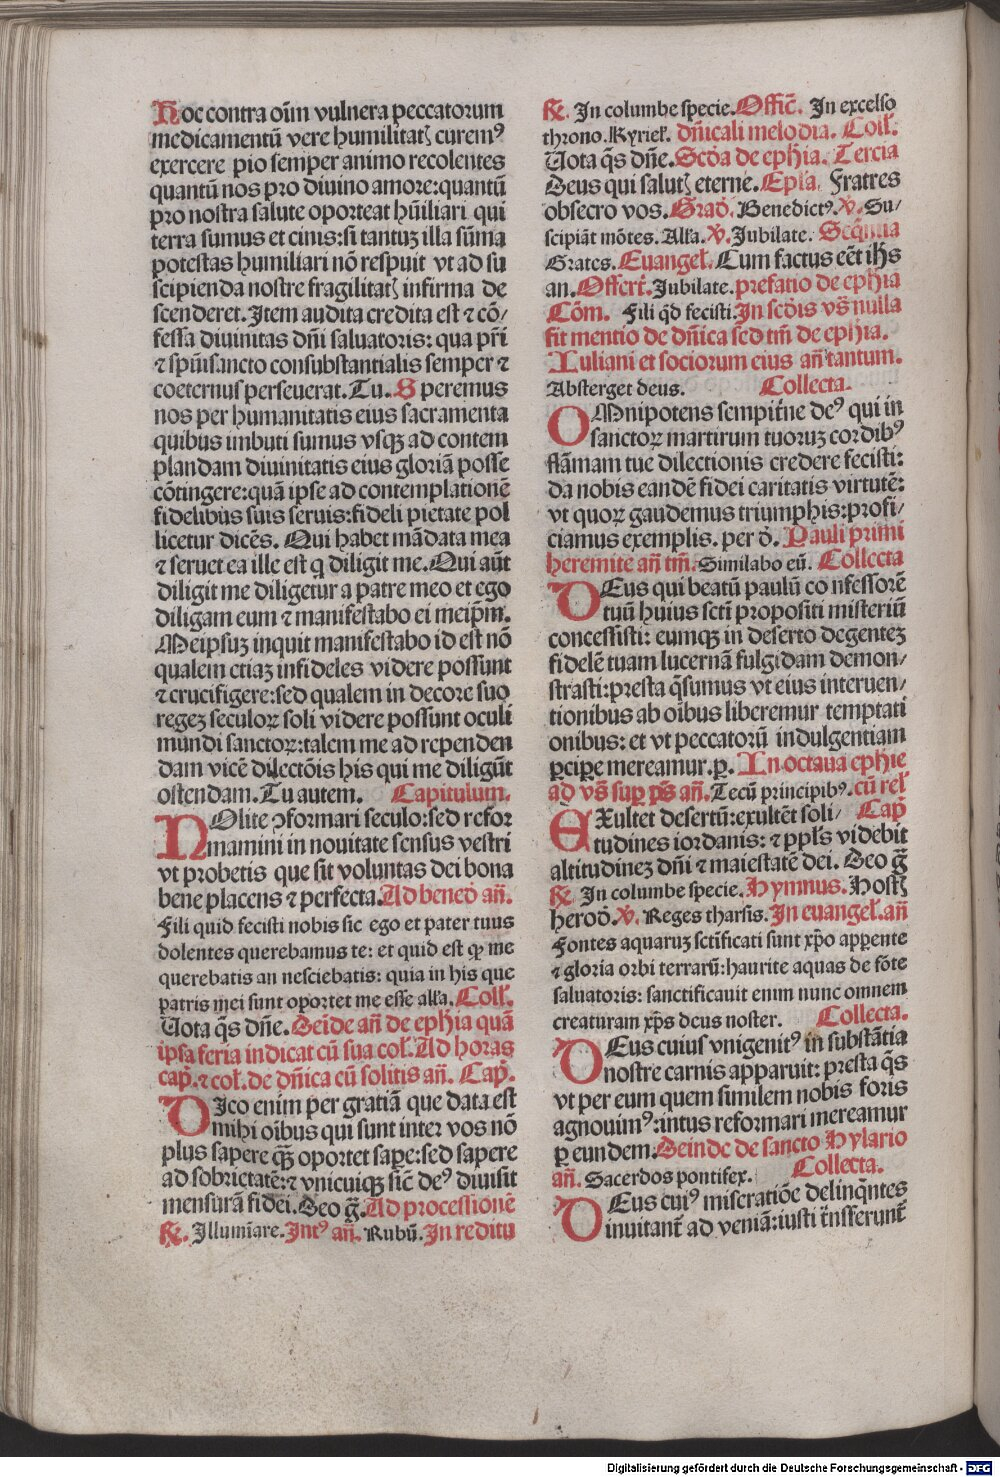 Hoc contra oīm vulnera peccatorum
medicamentū vere humilitatꝭ curemꝰ
exercere pio semper animo recolentes
quantū nos pro diuino amore:quantū
pro nostra salute oporteat hūiliari qui
terra sumus et cinis:si tantuꝫ illa sūma
potestas humiliari nō respuit vt ad su
scipienda nostre fragilitatꝭ infirma de
scenderet. Item audita credita est ⁊ cō/
fessa diuinitas dn̄i saluatoris: qua pr̄i
⁊ spūisancto consubstantialis semper ⁊
coeternus perseuerat. Tu. Speremus
nos per humanitatis eius sacramenta
quibus imbuti sumus vsqꝫ ad contem
plandam diuinitatis eius gloriā posse
cōtingere:quā ipse ad contemplationē
fidelibus suis seruis:fideli pietate pol
licetur dicēs. Qui habet mādata mea
⁊ seruet ea ille est q̄ diligit me. Qui aūt
diligit me diligetur a patre meo et ego
diligam eum ⁊ manifestabo ei meip̄m.
Meipsuꝫ inquit manifestabo id est nō
qualem etiaꝫ infideles videre possunt
⁊ crucifigere:sed qualem in decore suo
regeꝫ seculoꝝ soli videre possunt oculi
mundi sanctoꝝ:talem me ad rependen
dam vicē dilectōis his qui me diligūt
ostendam. Tu autem. Capitulum.
NOlite ꝯformari seculo:sed refor
mamini in nouitate sensus vestri
vt probetis que sit voluntas dei bona
bene placens ⁊ perfecta. Ad bened̄ an̄.
Fili quid fecisti nobis sic ego et pater tuus
dolentes querebamus te: et quid est ꝙ me
querebatis an nesciebatis: quia in his que
patris mei sunt oportet me esse alľa. Coll̄.
Uota q̄s dn̄e. Deīde an̄ de eph̄ia quā
ipsa feria indicat cū sua col̄. Ad horas
cap̄. ⁊ col̄. de dn̄ica cū solitis an̄. Cap̄.
DIco enim per gratiā que data est
mihi oībus qui sunt inter vos nō
plus sapere qꝫ oportet sape:sed sapere
ad sobrietatē:⁊ vnicuiqꝫ sic̄ deꝰ diuisit
mensurā fidei. Deo gr̄. Ad processionē
℟. Illumīare. Intꝰ an̄. Rubū. In reditu
℟. In columbe specie. Offic̄. In excelso
throno. Kyriel̄. dn̄icali melodia. Coll̄.
Uota q̄s dn̄e. Scd̄a de eph̄ia. Tercia
Deus qui salutꝭ eterne. Epl̄a. Fratres
obsecro vos. Grad̄. Benedictꝰ. ℣. Su/
scipiāt mōtes. Alľa. ℣. Jubilate. Seq̄ntia
Grates. Euangel̄. Cum factus eēt ihs̄
an. Offert̄. Jubilate. prefatio de eph̄ia
Cōm. Fili qd̄ fecisti. In scd̄is vs̄ nulla
fit mentio de dn̄ica sed tm̄ de eph̄ia.
Iuliani et sociorum eius an̄ tantum.
Absterget deus. Collecta.
OMnipotens sempit̄ne deꝰ qui in
sanctoꝝ martirum tuoruꝫ cordibꝰ
flāmam tue dilectionis credere fecisti:
da nobis eandē fidei caritatis virtutē:
vt quoꝝ gaudemus triumphis:profi/
ciamus exemplis. per d̄. Pauli primi
heremite an̄ tm̄. Similabo eū. Collecta
DEus qui beatū paulū confessorē
tuū huius scti propositi misteriū
concessisti: eumqꝫ in deserto degenteꝫ
fidelē tuam lucernā fulgidam demon/
strasti:presta q̄sumus vt eius interuen/
tionibus ab oībus liberemur temptati
onibus: et vt peccatorū indulgentiam
ꝑcipe mereamur. ꝑ. In octaua ephie
ad vs̄ sup̄ ps̄ an̄. Tecū principibꝰ. cū rel̄
EXultet desertū:exultēt soli/ Cap̄
tudines iordanis: ⁊ ppl̄s videbit
altitudineꝫ dn̄i ⁊ maiestatē dei. Deo gr̄
℟. In columbe specie. Hymnus. Hostꝭ
herod̄. ℣. Reges tharsis. In euangel̄. an̄
Fontes aquaruꝫ sctīficati sunt xp̄o apꝑente
⁊ gloria orbi terrarū:haurite aquas de fōte
saluatoris: sanctificauit enim nunc omnem
creaturam xp̄s deus noster. Collecta.
DEus cuius vnigenitꝰ in substātia
nostre carnis apparuit: presta q̄s
vt per eum quem similem nobis foris
agnouimꝰ:intus reformari mereamur
ꝑ eundem. Deinde de sancto Hylario
an̄. Sacerdos pontifex. Collecta.
DEus cuiꝰ miseratiōe delinq̄ntes
inuitant̄ ad veniā:iusti t̄nsferunt̄
Digitalisierung gefördert durch die Deutsche Forschungsgemeinschaft - DFG